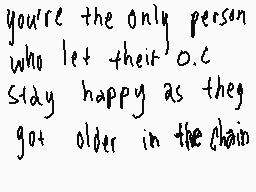 you're the only person
who let their O.C
stay happy as they
got older in the chain